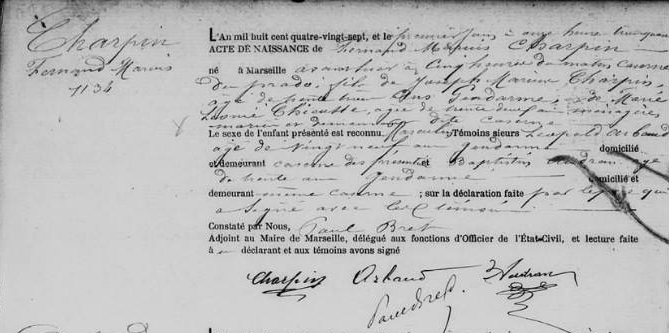 Charpin
Fernand Marius
1134
L'An mil huit cent quatre-vingt-sept, et le premier à onze heure
ACTE DE NAISSANCE de Fernand Marius Charpin
né à Marseille à cinq heures du matin caserne
du prado, fils de Joseph Marius Charpin,
âgé de trente trois ans Gendarme, et de Marie
âgée de trente ans ménagère
mariés et demeurant dite caserne
Le sexe de l'enfant présenté est reconnu Masculin, Témoins sieurs Léopold Arbaud
âgé de vingt neuf ans gendarme domicilié
et demeurant caserne des présents et Baptistin âgé
de trente ans Gendarme domicilié et
demeurant même caserne ; sur la déclaration faite par le père qui
a signé avec les témoins
Constaté par Nous, Paul Bret
Adjoint au Maire de Marseille, délégué aux fonctions d'Officier de l'État-Civil, et lecture faite
à déclarant et aux témoins avons signé
Charpin Arbaud
Paul Bret